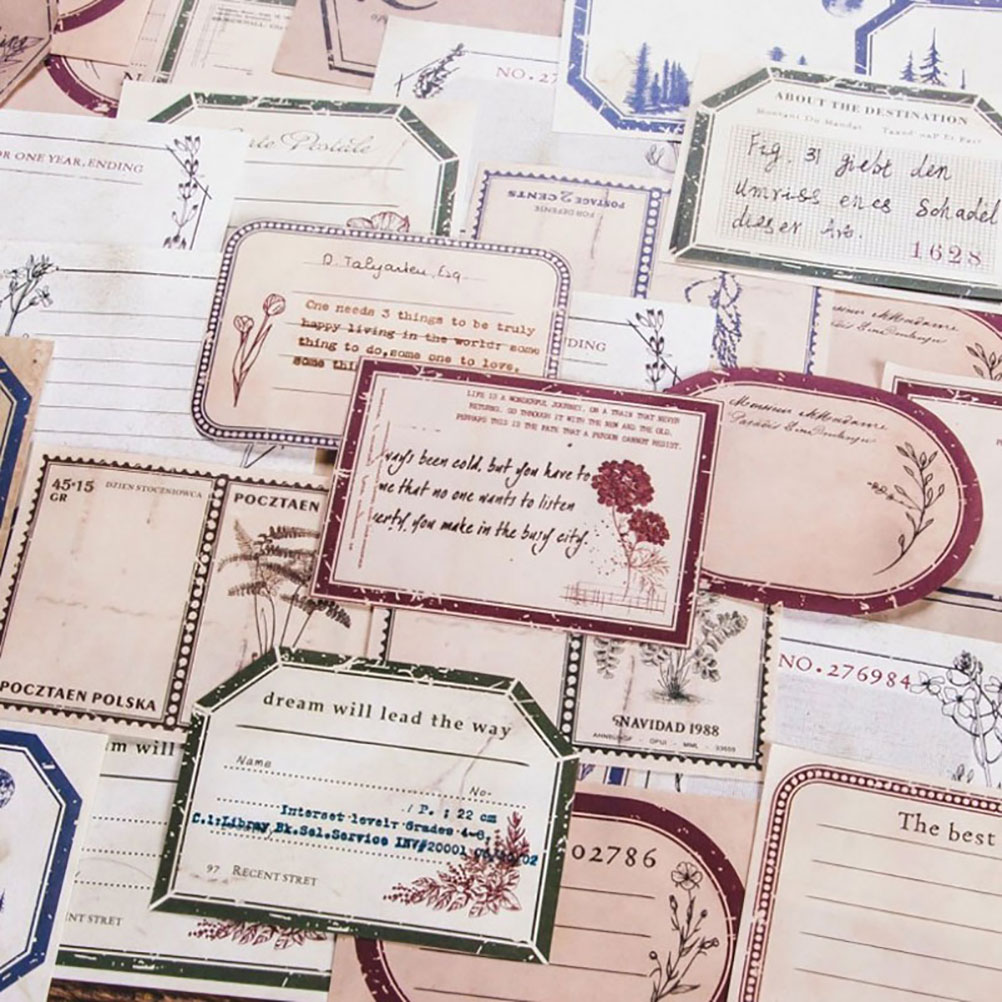 NO.27
ABOUT THE DESTINATION
Fig. 31 giebt den
Umriss enes Schädel
dieser Are.
1628
OR ONE YEAR, ENDING
POSTAGE 2 CENTS
FOR DEFENSE
D. Talyarten, Esq
One needs 3 things to be truly
happy living in the world: some
thing to do, some one to love,
some thi
DING
LIFE IS A WONDERFUL JOURNEY, OR A TRAIN THAT NEVER
RETURNS. GO THROUGH IT WITH THE NEW AND THE OLD.
PERHAPS THIS IS THE FATE THAT A PERSON CANNOT RESIST.
ways been cold, but you have to
me that no one wants to listen
erty, you make in the busy city.
45+15
GR
DZIEN STOCENIOWCA
POCZTAEN
POCZTAEN POLSKA
NAVIDAD 1988
NO.276984
dream will lead the way
Name
No-
P.: 22 cm
Interset level: Grades 4-6.
C.1:Libray Bk.Sel.Service INV#20001
97 RECENT STRET
m will
NT STRET
02786
The best